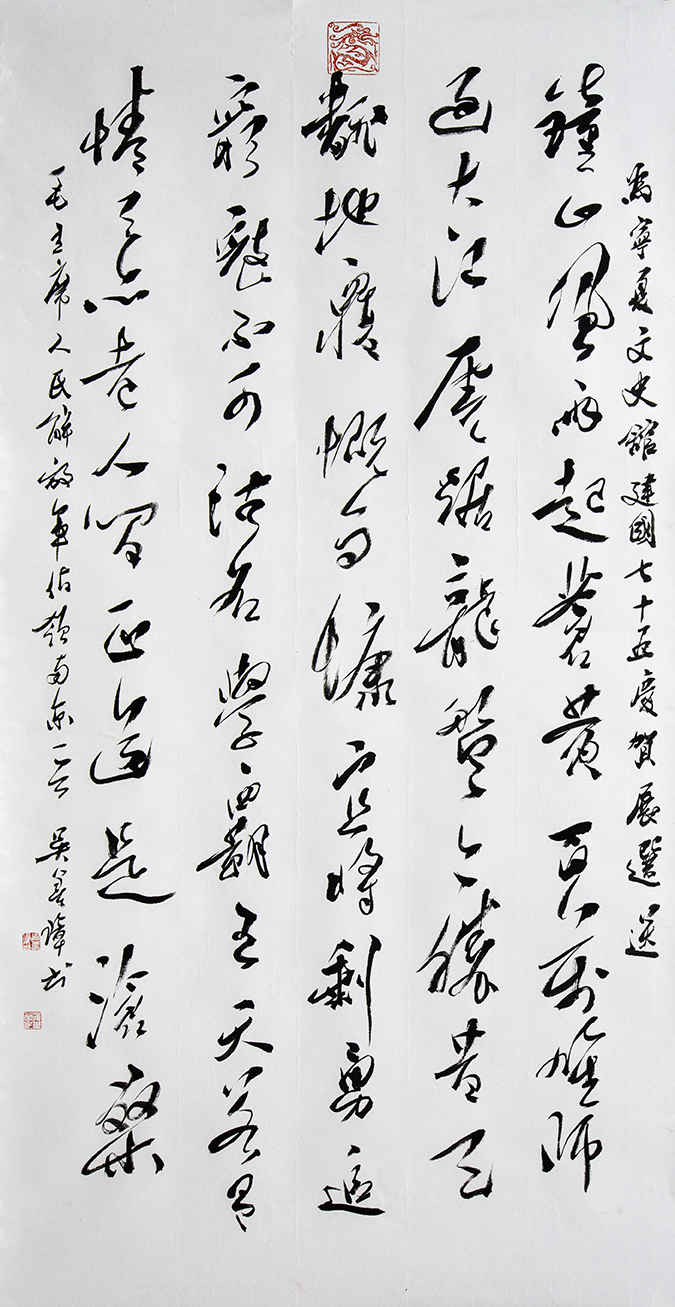 為寧夏文史舘建國七十五慶賀展選送
鐘山風雨起蒼黄百万雄師
過大江虎踞龍盤今勝昔天
翻地覆慨而慷宜將剩勇追
窮寇不可沽名學霸王天若有
情天亦老人間正道是滄桑
毛主席人民解放軍佔領南京一首 吴善璋书